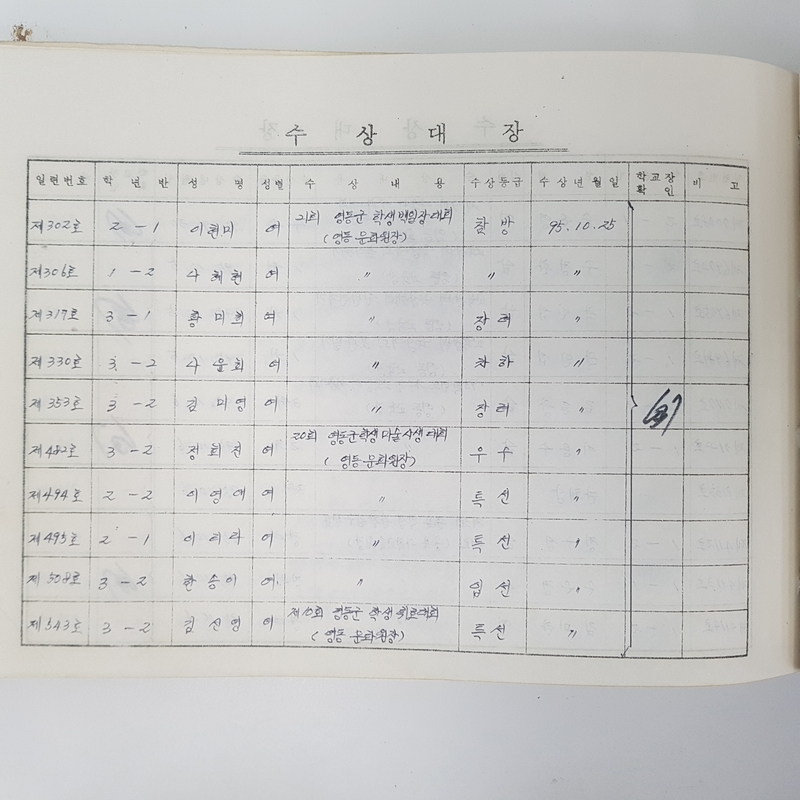 수 상 대 장
일련번호 학 년 반 성 명 성별 수 상 내 용 수상등급 수 상 년 월 일 학교장 확 인 비 고
제302호 2-1 이현미 여 21회 영동군 학생백일장대회 (영동문화원장) 참방 95.10.25
제306호 1-2 여 〃 〃 〃
제317호 3-1 황미희 여 〃 장려 〃
제330호 3-2 사윤희 여 〃 차하 〃
제353호 3-2 김미영 여 〃 장려 〃
제482호 3-2 정희진 여 20회 영동군학생미술사생대회 (영동문화원장) 우수 〃
제494호 2-2 이영애 여 〃 특선 〃
제495호 2-1 이리라 여 〃 특선 〃
제508호 3-2 한송이 여 〃 입선 〃
제543호 3-2 김선영 여 제10회 영동군 학생휘호대회 (영동문화원장) 특선 〃